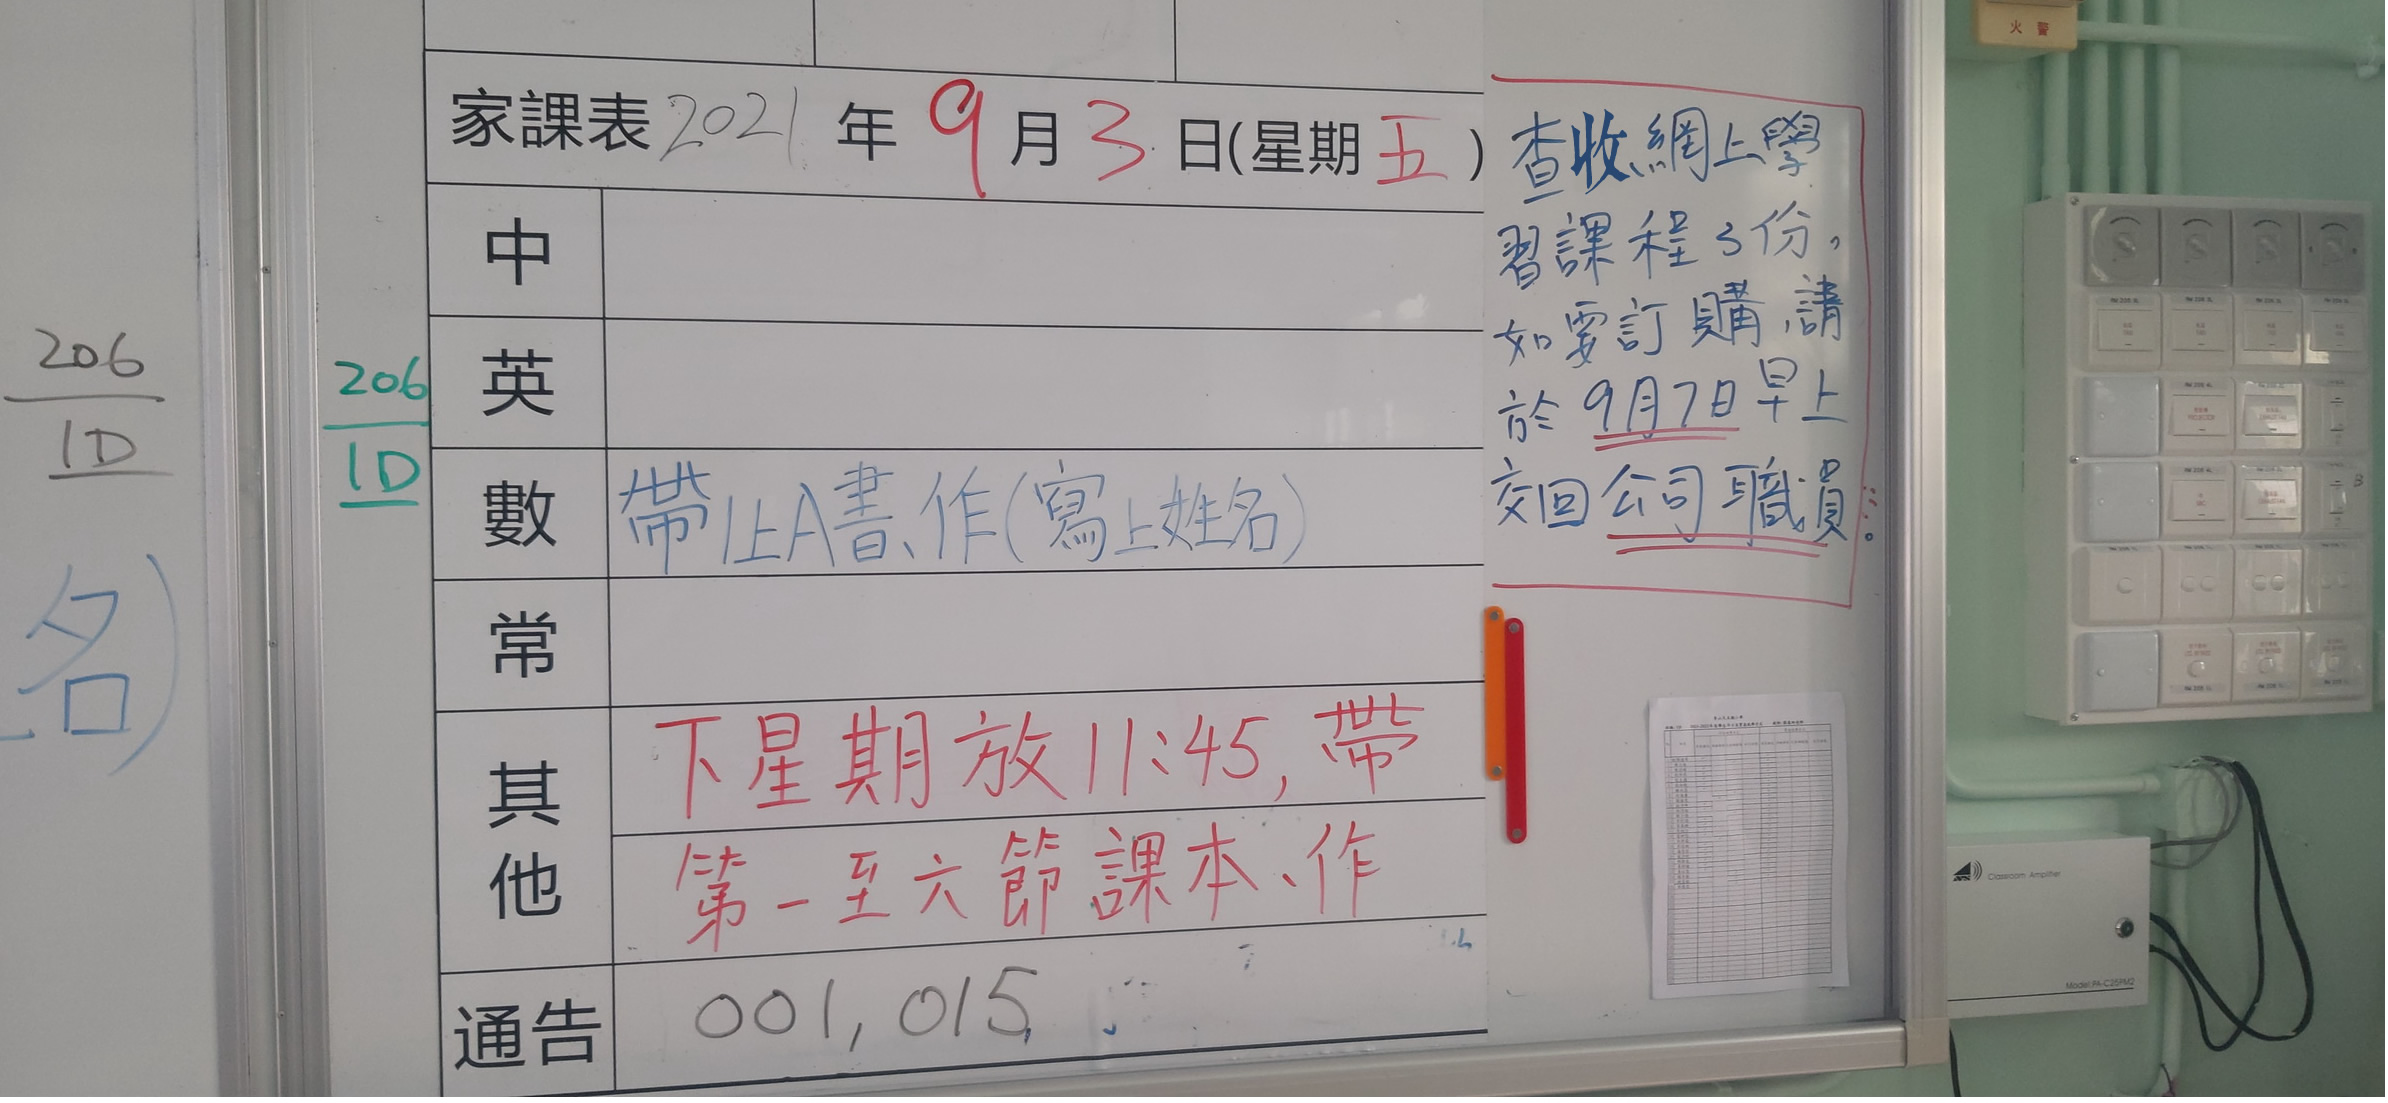 火警
家課表2021年9月3日(星期五)
中
英
數 帶1上A書、作(寫上姓名)
常
其他 下星期放11:45,帶
第一至六節課本、作
通告 001, 015
查收網上學
習課程3份,
如要訂購,請
於9月7日早上
交回公司職員。
206
1D
206
1D
名)
Classroom Amplifier
Model: PA-C25PM2